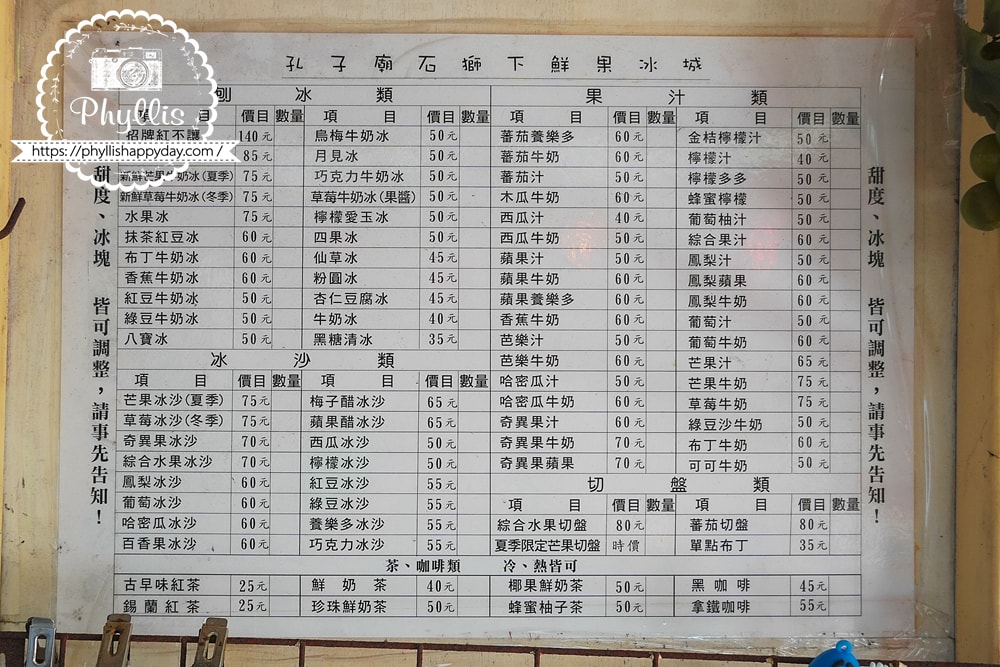 Phyllis
https://phyllishappyday.com/
孔子廟石獅下鮮果冰城
刨冰類
項目 價目 數量 項目 價目 數量
招牌紅不讓 140元 烏梅牛奶冰 50元
85元 月見冰 50元
新鮮芒果牛奶冰(夏季) 75元 巧克力牛奶冰 50元
新鮮草莓牛奶冰(冬季) 75元 草莓牛奶冰(果醬) 50元
水果冰 75元 檸檬愛玉冰 50元
抹茶紅豆冰 60元 四果冰 50元
布丁牛奶冰 60元 仙草冰 45元
香蕉牛奶冰 60元 粉圓冰 45元
紅豆牛奶冰 50元 杏仁豆腐冰 45元
綠豆牛奶冰 50元 牛奶冰 40元
八寶冰 50元 黑糖清冰 35元
冰沙類
項目 價目 數量 項目 價目 數量
芒果冰沙(夏季) 75元 梅子醋冰沙 65元
草莓冰沙(冬季) 75元 蘋果醋冰沙 65元
奇異果冰沙 70元 西瓜冰沙 50元
綜合水果冰沙 70元 檸檬冰沙 50元
鳳梨冰沙 60元 紅豆冰沙 55元
葡萄冰沙 60元 綠豆冰沙 55元
哈密瓜冰沙 60元 養樂多冰沙 55元
百香果冰沙 60元 巧克力冰沙 55元
果汁類
項目 價目 數量 項目 價目 數量
蕃茄養樂多 60元 金桔檸檬汁 50元
蕃茄牛奶 60元 檸檬汁 40元
蕃茄汁 50元 檸檬多多 50元
木瓜牛奶 60元 蜂蜜檸檬 50元
西瓜汁 40元 葡萄柚汁 50元
西瓜牛奶 50元 綜合果汁 60元
蘋果汁 50元 鳳梨汁 50元
蘋果牛奶 60元 鳳梨蘋果 60元
蘋果養樂多 60元 鳳梨牛奶 60元
香蕉牛奶 60元 葡萄汁 50元
芭樂汁 50元 葡萄牛奶 60元
芭樂牛奶 60元 芒果汁 65元
哈密瓜汁 50元 芒果牛奶 75元
哈密瓜牛奶 60元 草莓牛奶 75元
奇異果汁 60元 綠豆沙牛奶 50元
奇異果牛奶 70元 布丁牛奶 60元
奇異果蘋果 70元 可可牛奶 50元
切盤類
項目 價目 數量 項目 價目 數量
綜合水果切盤 80元 蕃茄切盤 80元
夏季限定芒果切盤 時價 單點布丁 35元
茶、咖啡類 冷、熱皆可
古早味紅茶 25元 鮮奶茶 40元 椰果鮮奶茶 50元 黑咖啡 45元
錫蘭紅茶 25元 珍珠鮮奶茶 50元 蜂蜜柚子茶 50元 拿鐵咖啡 55元
甜度、冰塊 皆可調整，請事先告知！
甜度、冰塊 皆可調整，請事先告知！